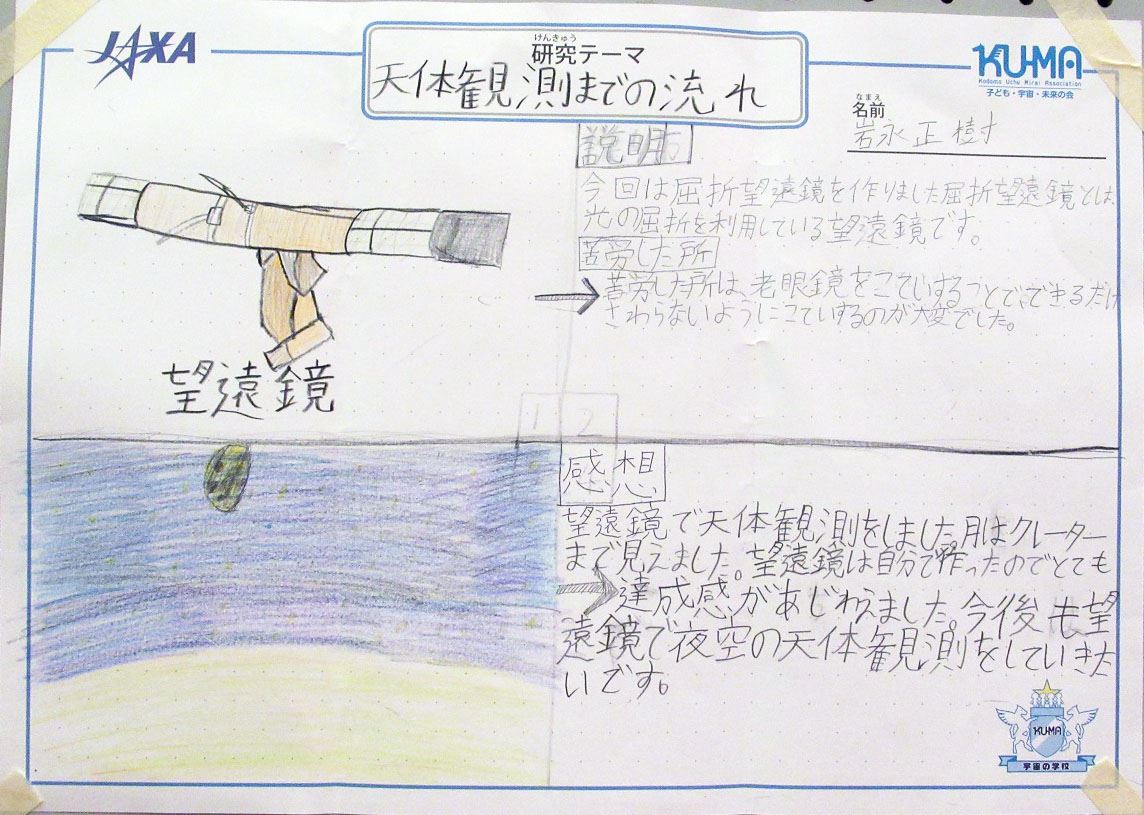 JAXA
けんきゅう
研究テーマ
天体観測までの流れ
KU-MA
Kodomo Uchu Mirai Association
子ども・宇宙・未来の会
なまえ
名前
岩永正樹
説明
今回は屈折望遠鏡を作りました屈折望遠鏡とは、
光の屈折を利用している望遠鏡です。
苦労した所
苦労した所は、老眼鏡をこていすることで、できるだけ
さわらないようにこていするのが大変でした。
望遠鏡
1 2
感想
望遠鏡で天体観測をしました。月はクレーター
まで見えました。望遠鏡は自分で作ったのでとても
達成感があじわえました。今後も望
遠鏡で夜空の天体観測をしていきた
いです。
KU-MA
宇宙の学校